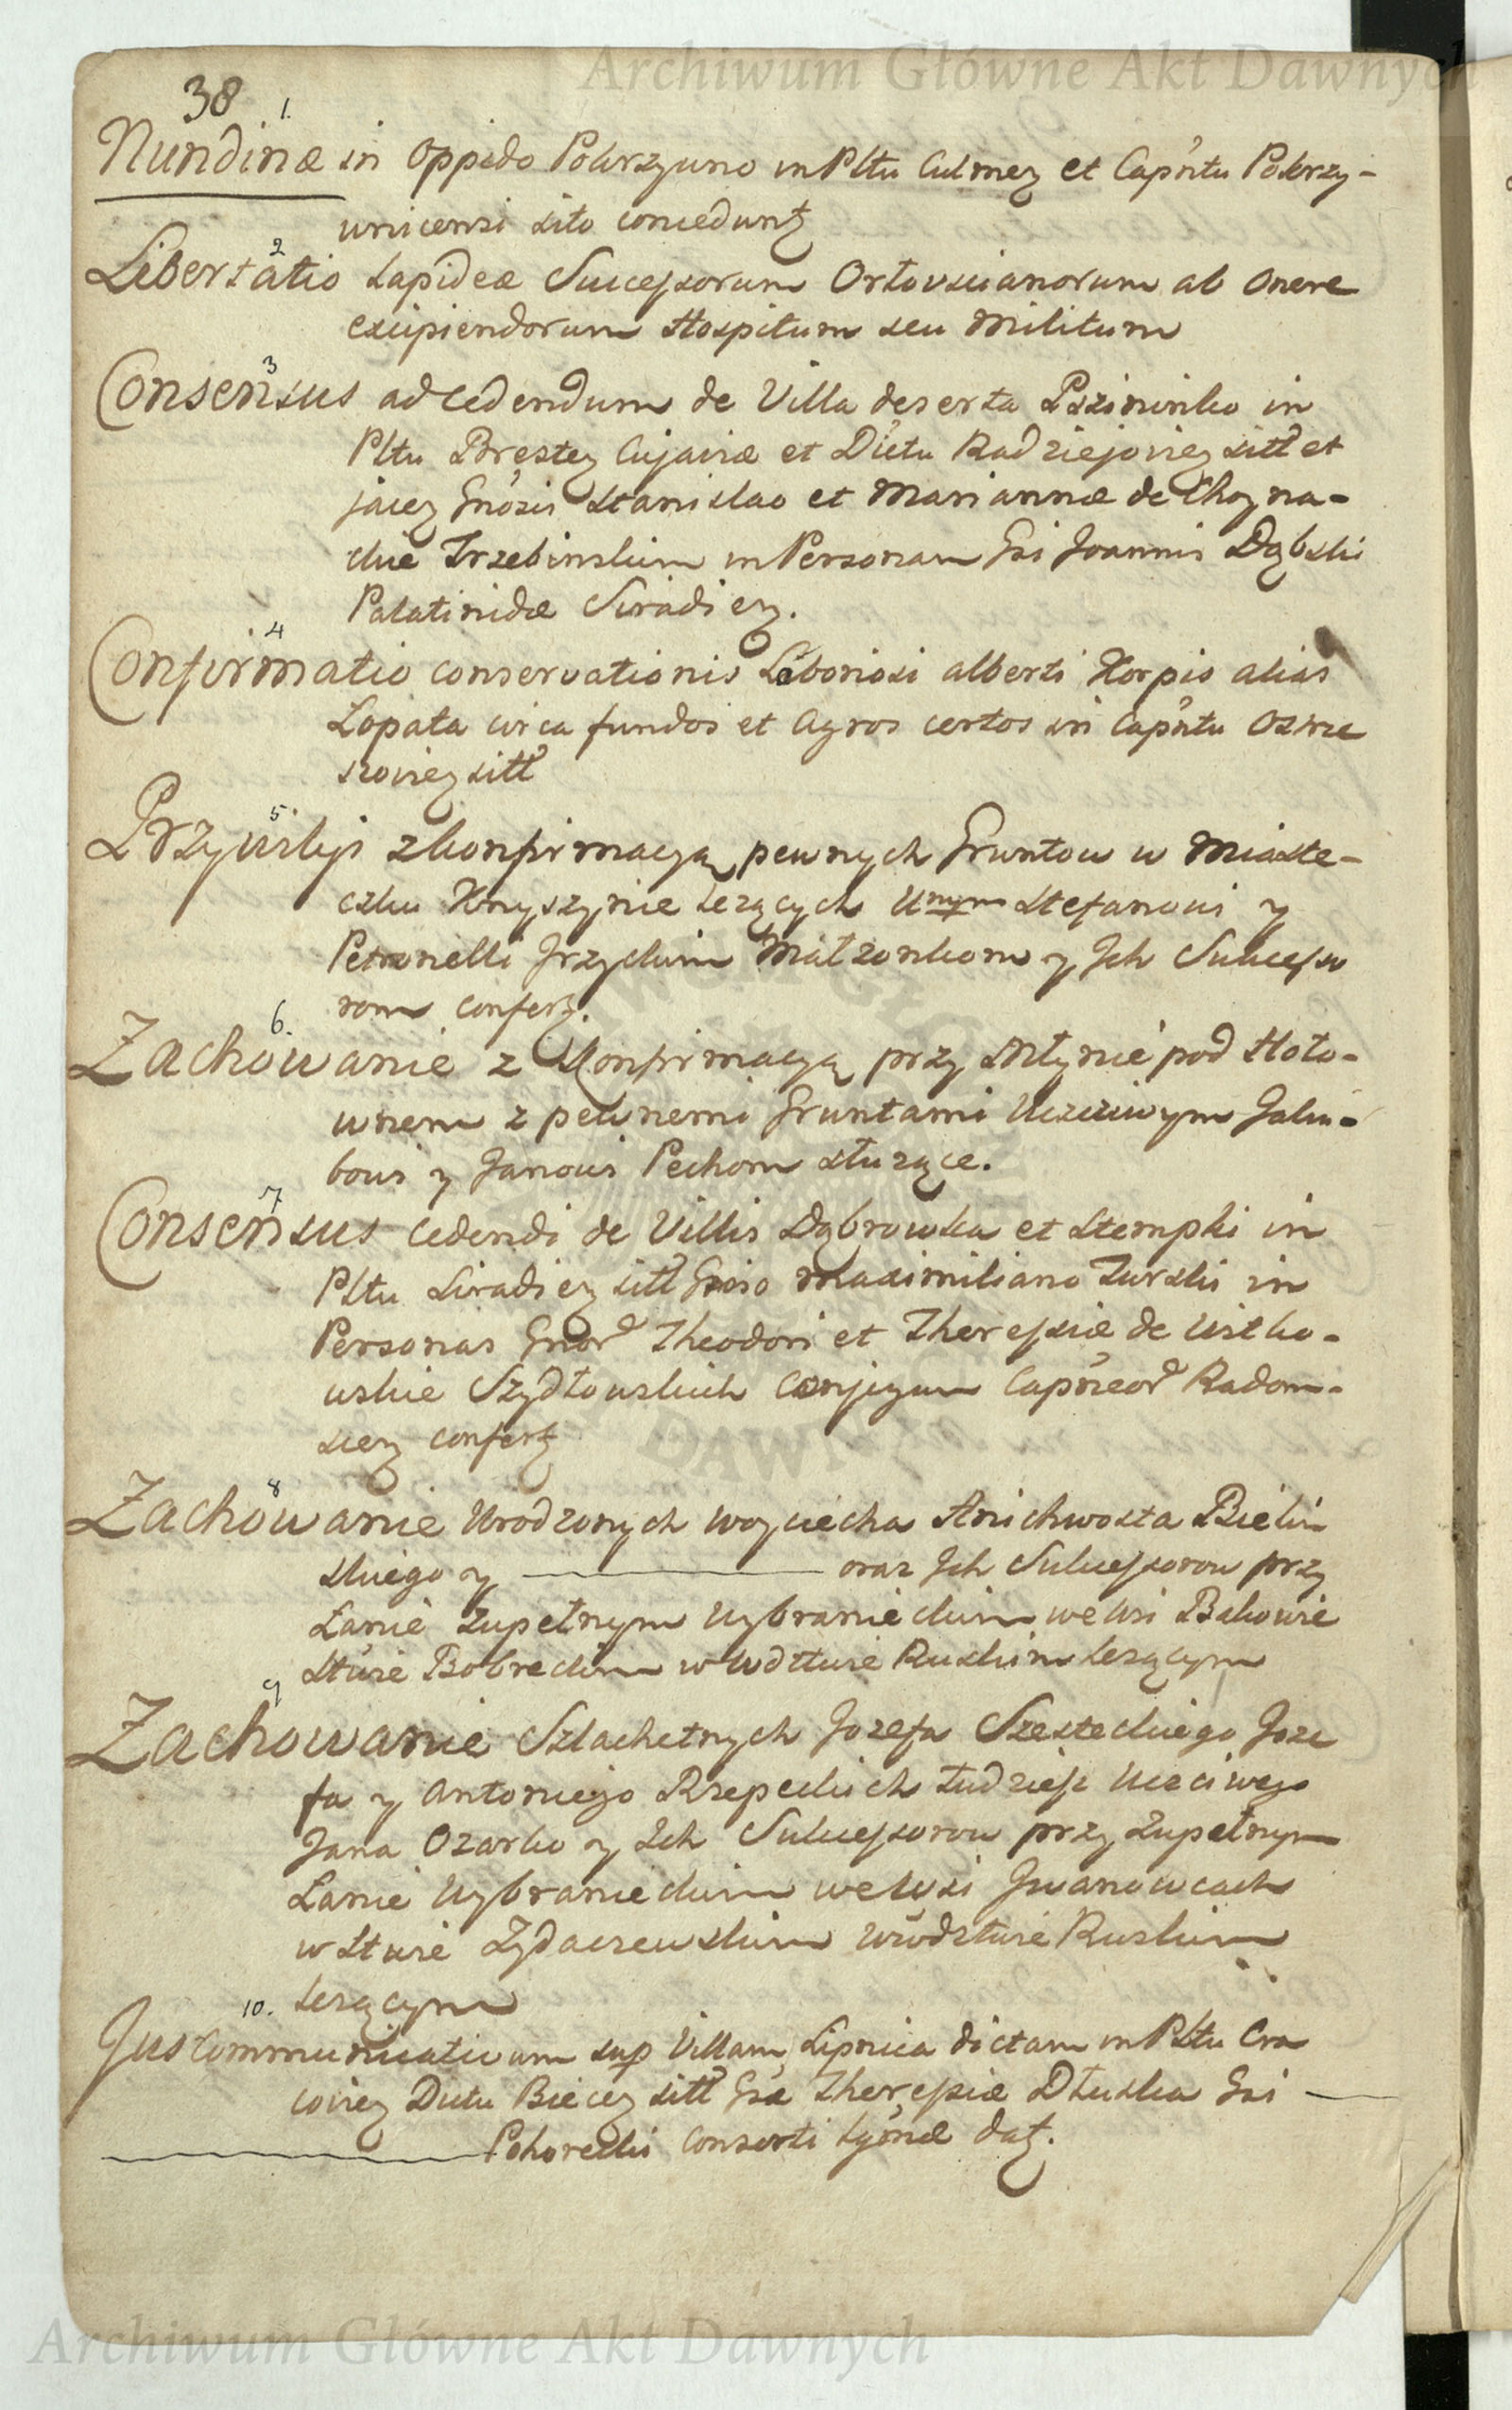 Archiwum Główne Akt Dawnych
38
1.
Nundinæ in Oppido Pokrzywno in Pltu Culmeȝ et Cap̄ntu Pokrzy-
wnicensi sito conceduntȝ
2
Libertatio Lapideæ Successorum Ortovscianorum ab onere
excipiendorum Hospitum seu Militum
3
Consensus ad Cedendum de Villa deserta Pszininko in
Pltu Bresteȝ Cujaviæ et Dictu Radziejovieȝ sitt et
jaceȝ Gnosis Stanislao et Mariannæ de Choyna-
ckie Trzebinskim in Personam Gsi Joannis Dąbski
Palatinidæ Siradieȝ.
4
Confirmatio conservationis Laboriosi Alberti Korpis alias
Lopata circa fundos et Agros certos in Cap̄ntu Ostrze
szovieȝ sitt
5
Przywiley z konfirmacyą pewnych Gruntow w Miaste-
czku Knyszynie lezących Unym Stefanowi y
Petronelli Jrzyckim Małzonkom y Jch Sukcesso
rom confertȝ.
6.
Zachowanie z Konfirmacyą przy Młynie pod Hoło-
wnem z pewnemi Gruntami Uczciwym Jaku-
bowi y Janowi Pechom słuzące.
7
Consensus cedendi de Villis Dąbrowka et Stempki in
Pltu Siradieȝ sitt Gnoso Maximiliano Turski in
Personas Gnor Theodori et Theressiæ de Witko-
wskie Szydłowskich Conjugum Cap̄neor Radom-
scieȝ confertȝ
8
Zachowanie Urodzonych Woyciecha Anichwosta Bielin
skiego y oraz Jch Sukcessorow przy
Lanie zupełnym Wybranieckim we wsi Bakowie
Stwie Bobreckim w Wdztwie Ruskim lezącym
9
Zachowanie Szlachetnych Jozefa Szesteckiego Joze
fa y Antoniego Rzepeckich tudziesz Uczciwego
Jana Ozarko y Jch Sukcessorow przy Zupełnym
Lanie Wybranieckim we Wsi Jwanowcach
w Stwie Zydaczewskim Wwodztwie Ruskim
lezącym
10.
Jus Communicativum sup Villam Lipnica dictam in Pltu Cra
covieȝ Dictu Bieceȝ sitt Gsæ Theressiæ Dłuska Gsi
Pohorecki Consorti Lgonæ datȝ.
Archiwum Główne Akt Dawnych